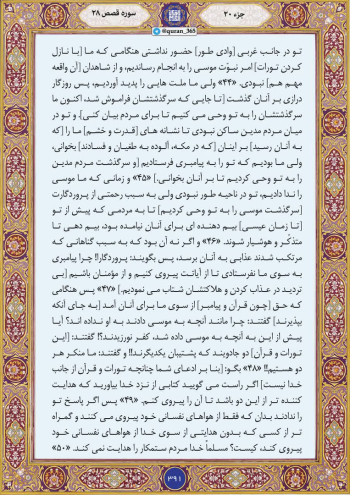 جزء ۲۰
سوره قصص ۲۸
@quran_365
تو در جانب غربی [وادی طور] حضور نداشتی هنگامی که ما [با نازل
کردن تورات] امر نبوّت موسی را به انجام رساندیم، و از شاهدان [آن واقعه
مهم هم] نبودی. «۴۴» ولی ما ملت هایی را پدید آوردیم، پس روزگار
درازی بر آنان گذشت [تا جایی که سرگذشتشان فراموش شد، اکنون ما
سرگذشتشان را به تو وحی می کنیم تا برای مردم بیان کنی]. و تو در
میان مردم مدین ساکن نبودی تا نشانه های [قدرت و خشم] ما را [که
به آنان رسید] بر اینان [که در مکه، آلوده به طغیان و فسادند] بخوانی،
ولی ما بودیم که تو را به پیامبری فرستادیم [و سرگذشت مردم مدین
را به تو وحی کردیم تا بر آنان بخوانی.] «۴۵» و زمانی که ما موسی
را ندا دادیم، تو در ناحیه طور نبودی ولی به سبب رحمتی از پروردگارت
[سرگذشت موسی را به تو وحی کردیم] تا به مردمی که پیش از تو
[تا زمان عیسی] بیم دهنده ای برای آنان نیامده بود، بیم دهی تا
متذکّر و هوشیار شوند. «۴۶» و اگر نه آن بود که به سبب گناهانی که
مرتکب شدند عذابی به آنان برسد، پس بگویند: پروردگارا! چرا پیامبری
به سوی ما نفرستادی تا از آیاتت پیروی کنیم و از مؤمنان باشیم [بی
تردید در عذاب کردن و هلاکتشان شتاب می نمودیم.] «۴۷» پس هنگامی
که حق [چون قرآن و پیامبر] از سوی ما برای آنان آمد [به جای آنکه
بپذیرند] گفتند: چرا مانند آنچه به موسی دادند به او نداده اند؟ آیا
پیش از این به آنچه به موسی داده شد، کفر نورزیدند؟! گفتند: [این
تورات و قرآن] دو جادویند که پشتیبان یکدیگرند!! و گفتند: ما منکر هر
دو هستیم!! «۴۸» بگو: [بنا بر ادعای شما چنانچه تورات و قرآن از جانب
خدا نیست] اگر راست می گویید کتابی از نزد خدا بیاورید که هدایت
کننده تر از این دو باشد تا آن را پیروی کنم. «۴۹» پس اگر پاسخ تو
را ندادند بدان که فقط از هواهای نفسانی خود پیروی می کنند و گمراه
تر از کسی که بدون هدایتی از سوی خدا از هواهای نفسانی خود
پیروی کند، کیست؟ مسلماً خدا مردم ستمکار را هدایت نمی کند. «۵۰»
۳۹۱